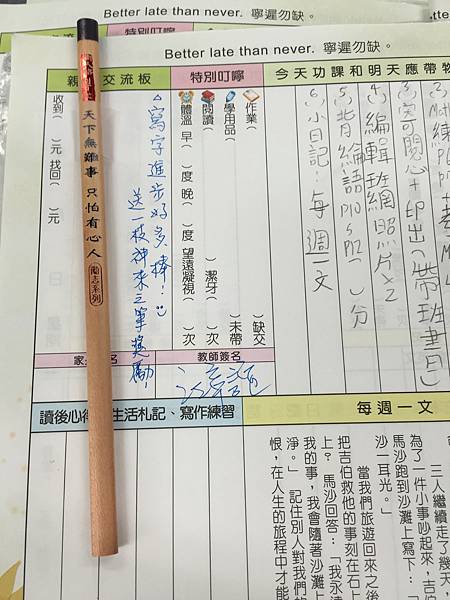 Better late than never. 寧遲勿缺。
特別叮嚀
Better late than never. 寧遲勿缺。
今天功課和明天應帶物
④編輯班網照片×2
⑤背論語P10、P12( )分
⑥小日記:每週一文
特別叮嚀
作業( )缺交
學用品( )未帶
閱讀( )潔牙( )次
體溫 早( )度 晚( )度 望遠凝視( )次
交流板
△寫字進步好多 棒!
送一枝神來之筆獎勵
收到( )元 找回( )元
天下無難事 只怕有心人 勵志系列
教師簽名
每週一文
三人繼續走了幾天,
為了一件小事吵起來,吉伯
馬沙跑到沙灘上寫下:「
沙一耳光。」
當我們旅遊回來之後
把吉伯救他的事刻在石上
上?馬沙回答:「我永遠
我的事,我會隨著沙灘上
淨。」 記住別人對我們的
恨,在人生的旅程中才能
生活札記、寫作練習